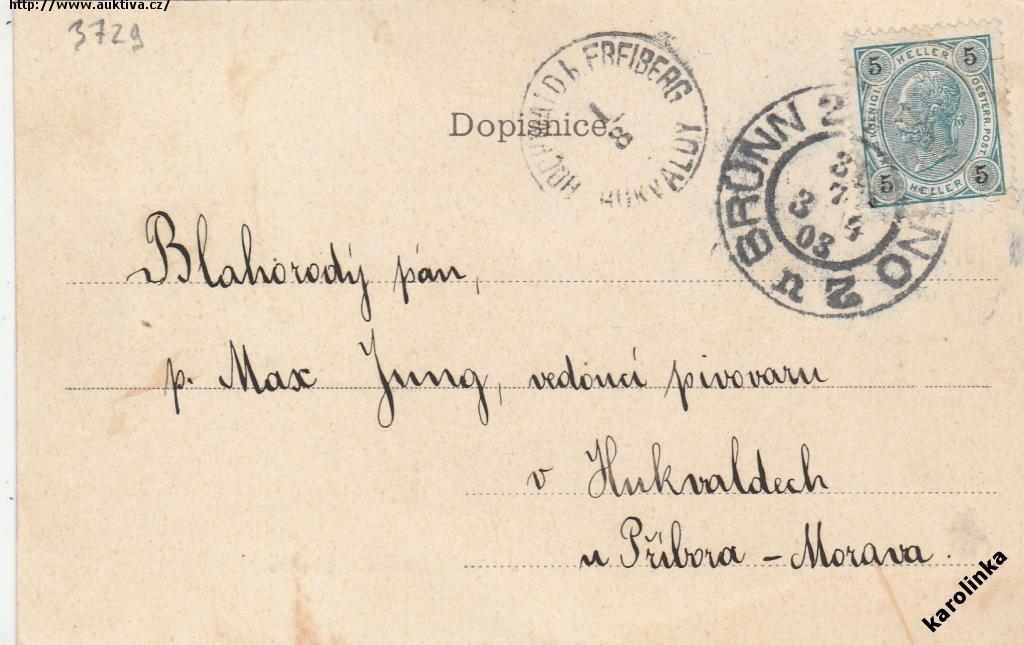 http://www.auktiva.cz/
3729
5 HELLER 5
KOENIGL. OESTERR. POST.
5 HELLER 5
HOCHWALD b. FREIBERG
1/8
HUKVALDY
Dopisnice.
BRÜNN 2
BRNO 2 u
3 03
Blahorodý pán,
p. Max Jung, vedoucí pivovaru
v Hukvaldech
u Příbora - Morava.
karolinka